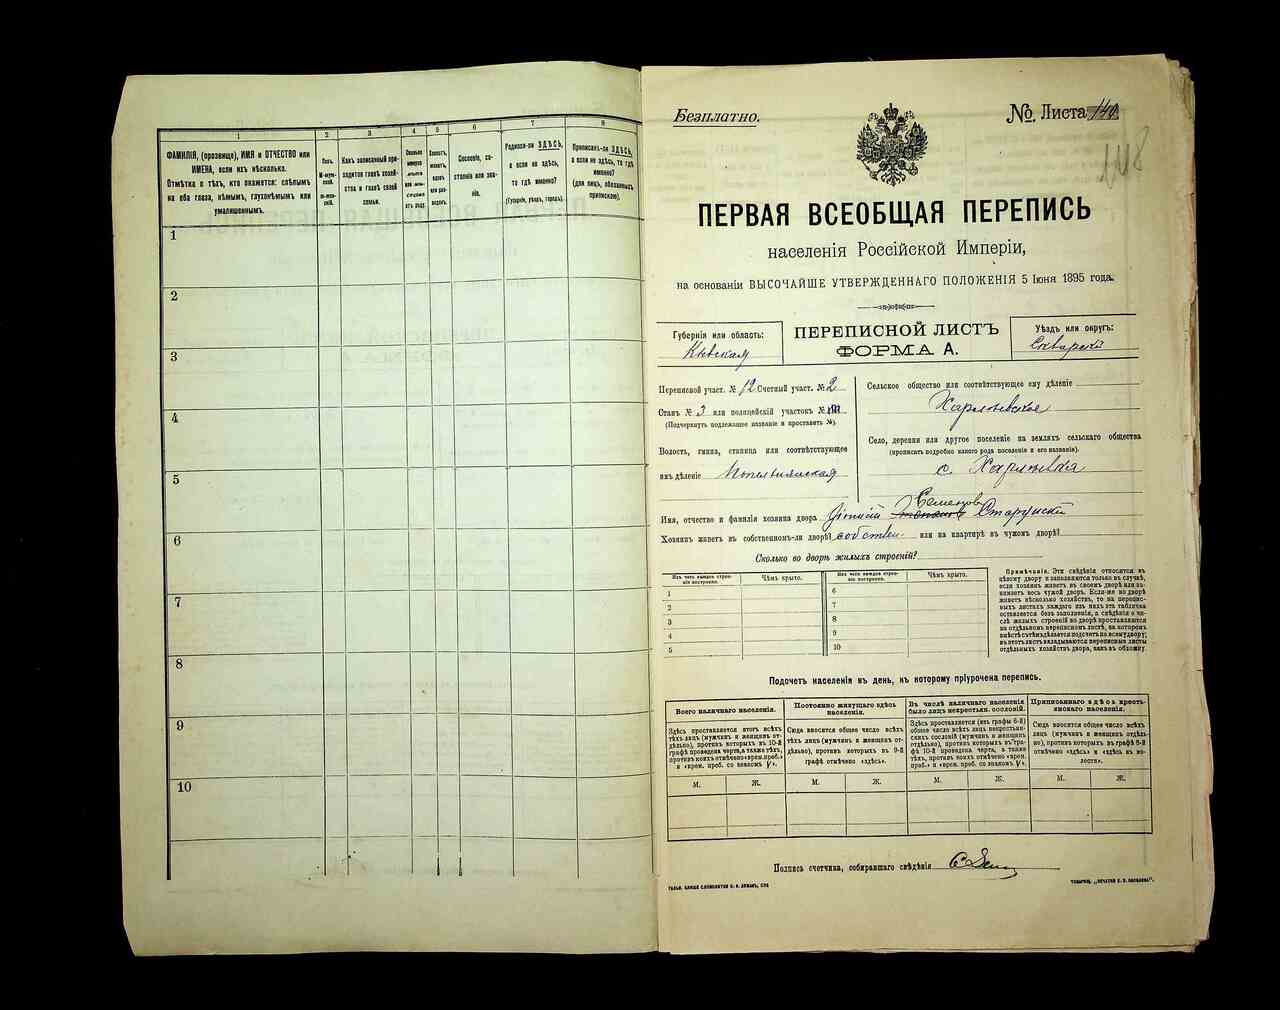 1
2
3
4
5
6
7
8
ФАМИЛІЯ, (прозвище), ИМЯ и ОТЧЕСТВО или
ИМЕНА, если ихъ нѣсколько.
Отмѣтка о тѣхъ, кто окажется: слѣпымъ
на оба глаза, нѣмымъ, глухонѣмымъ или
умалишеннымъ.
Полъ.
М-мужской.
Ж-женскій.
Какъ записанный приходится главѣ хозяйства и главѣ своей семьи.
Сословіе, состояніе или званіе.
Родился-ли ЗДѢСЬ,
а если не здѣсь,
то гдѣ именно?
(Губернія, уѣздъ, городъ).
Приписанъ-ли ЗДѢСЬ,
а если не здѣсь, то гдѣ
именно?
(для лицъ, обязанныхъ
припискою).
1
2
3
4
5
6
7
8
9
10
Безплатно.
№ Листа 140
118
ПЕРВАЯ ВСЕОБЩАЯ ПЕРЕПИСЬ
населенія Россійской Имперіи,
на основаніи ВЫСОЧАЙШЕ УТВЕРЖДЕННАГО ПОЛОЖЕНІЯ 5 Іюня 1895 года.
Губернія или область:
Кіевская
ПЕРЕПИСНОЙ ЛИСТЪ
ФОРМА А.
Уѣздъ или округъ:
Сквирскій
Переписной участ. № 12 Счетный участ. № 2
Станъ № 3 или полицейскій участокъ №
(Подчеркнуть подлежащее названіе и проставить №).
Волость, гмина, станица или соотвѣтствующее
имъ дѣленіе Попельнянская
Сельское общество или соотвѣтствующее ему дѣленіе
Харлѣевское
Село, деревня или другое поселеніе на земляхъ сельскаго общества
(прописать подробно какого рода поселеніе и его названіе).
с. Харлѣевка
Семеновъ
Имя, отчество и фамилія хозяина двора Старунскій
Хозяинъ живетъ въ собственномъ-ли дворѣ? собствен. или на квартирѣ въ чужомъ дворѣ?
Сколько во дворѣ жилыхъ строеній?
Изъ чего каждое строеніе построено.
Чѣмъ крыто.
Изъ чего каждое строеніе построено.
Чѣмъ крыто.
1
2
3
4
5
6
7
8
9
10
Примѣчаніе. Эти свѣдѣнія относятся къ
цѣлому двору и заполняются только въ случаѣ,
если хозяинъ живетъ въ своемъ дворѣ или занимаетъ
весь чужой дворъ. Если-же во дворѣ
живетъ нѣсколько хозяйствъ, то на переписныхъ
листахъ каждаго изъ нихъ эта табличка
оставляется безъ заполненія, а свѣдѣнія о числѣ
жилыхъ строеній во дворѣ проставляются
на отдѣльномъ переписномъ листѣ, на которомъ
вмѣстѣ съ тѣмъ дѣлается подсчетъ по всему двору;
въ этотъ листъ вкладываются переписные листы
отдѣльныхъ хозяйствъ двора, какъ въ обложку.
Подсчетъ населенія въ день, къ которому пріурочена перепись.
Всего наличнаго населенія.
Здѣсь проставляется итогъ всѣхъ
тѣхъ лицъ (мужчинъ и женщинъ отдѣльно),
противъ которыхъ въ 10-й
графѣ проведена черта, а также тѣхъ,
противъ коихъ отмѣчено «врем. преб.»
и «врем. преб. со знакомъ V».
Постоянно живущаго здѣсь
населенія.
Сюда вносится общее число всѣхъ
тѣхъ лицъ (мужчинъ и женщинъ отдѣльно),
противъ которыхъ въ 9-й
графѣ отмѣчено «здѣсь».
Въ числѣ наличнаго населенія
было лицъ некрестьян. сословій.
Здѣсь проставляется (изъ графы 6-й)
общее число всѣхъ лицъ некрестьянскихъ
сословій (мужчинъ и женщинъ
отдѣльно), противъ которыхъ въ графѣ
10-й проведена черта, а также
тѣхъ, противъ коихъ отмѣчено «врем.
преб.» и «врем. преб. со знакомъ V».
Приписаннаго здѣсь крестьянскаго
населенія.
Сюда вносится общее число всѣхъ
лицъ (мужчинъ и женщинъ отдѣльно),
противъ которыхъ въ графѣ 8-й
отмѣчено «здѣсь» и «здѣсь въ волости».
М.
Ж.
М.
Ж.
М.
Ж.
М.
Ж.
Подпись счетчика, собиравшаго свѣдѣнія